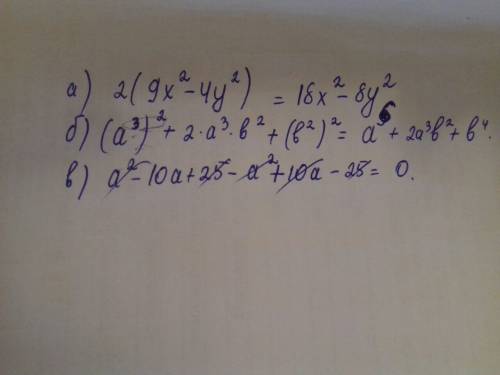 а) 2(9x²-4y²) = 18x²-8y²
б) (a³)²+2·a³·b²+(b²)²= a⁶+2a³b²+b⁴.
в) a²-10a+25-a²+10a-25=0.